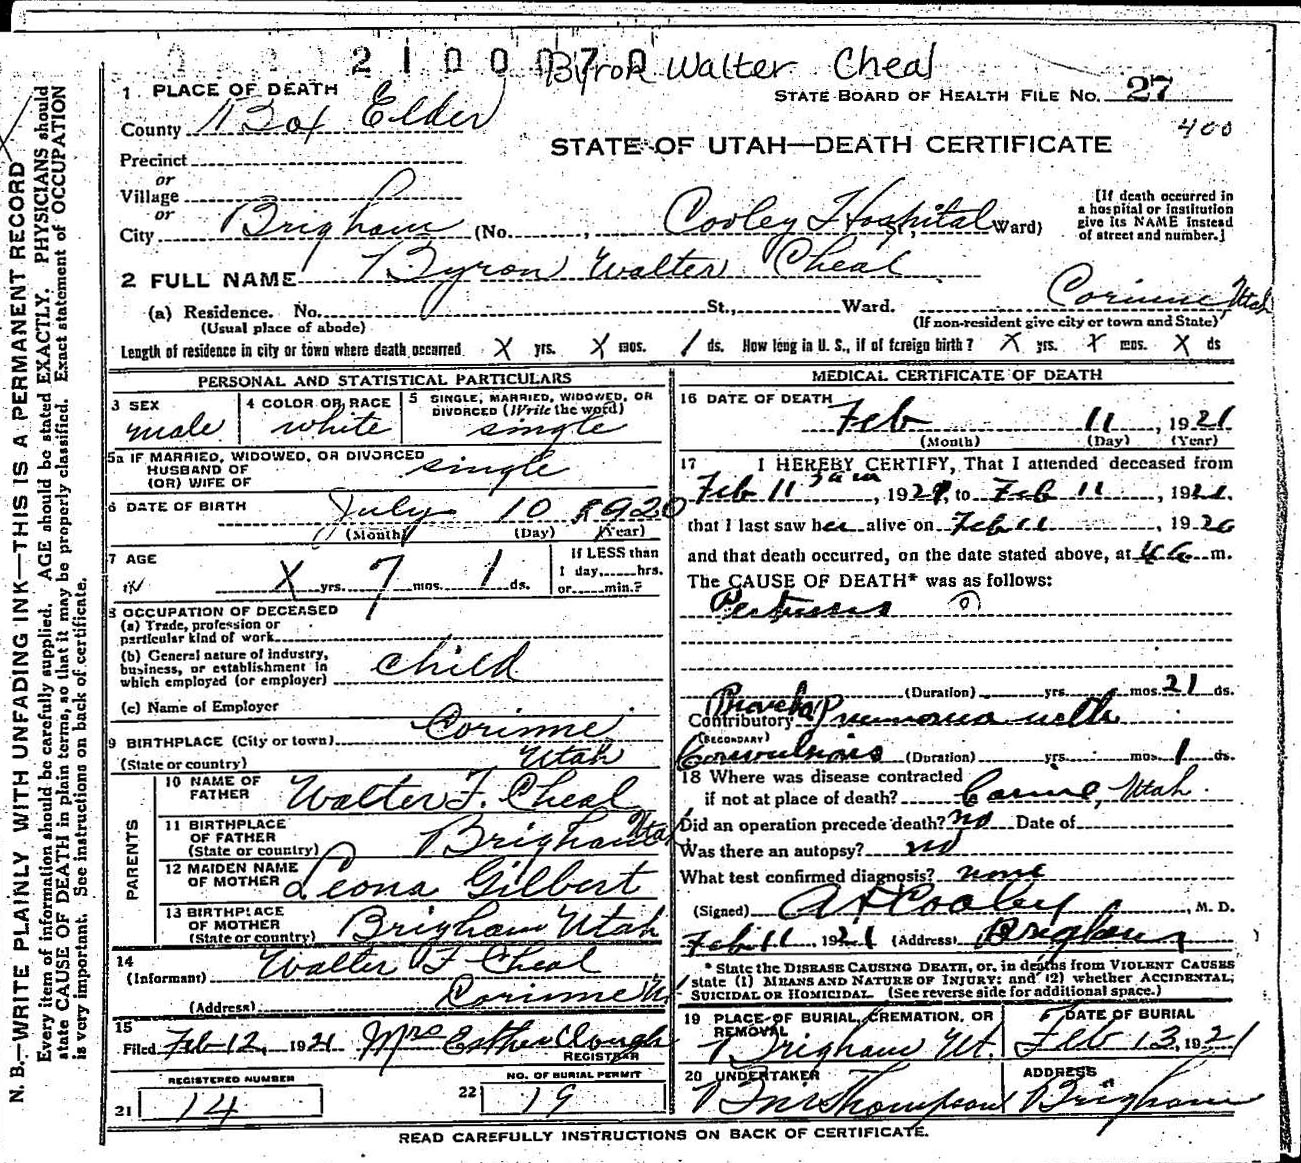 2100070
Byron Walter Cheal
STATE BOARD OF HEALTH FILE NO. 27
400
1 PLACE OF DEATH
County Box Elder
STATE OF UTAH—DEATH CERTIFICATE
Precinct
or
Village
or
City Brigham (No. , Cooley Hospital St., Ward)
[If death occurred in a hospital or institution give its NAME instead of street and number.]
2 FULL NAME Byron Walter Cheal
(a) Residence. No. St., Ward. Corinne, Utah
(Usual place of abode) (If non-resident give city or town and State)
Length of residence in city or town where death occurred X yrs. X mos. 1 ds. How long in U. S., if of foreign birth? X yrs. X mos. X ds
PERSONAL AND STATISTICAL PARTICULARS
3 SEX male
4 COLOR OR RACE white
5 SINGLE, MARRIED, WIDOWED, OR DIVORCED (Write the word) single
5a IF MARRIED, WIDOWED, OR DIVORCED
HUSBAND OF
(OR) WIFE OF single
6 DATE OF BIRTH July 10 1920
(Month) (Day) (Year)
7 AGE X yrs. 7 mos. 1 ds.
If LESS than
1 day, hrs.
or min.?
8 OCCUPATION OF DECEASED
(a) Trade, profession or
particular kind of work
(b) General nature of industry,
business, or establishment in
which employed (or employer) child
(c) Name of Employer
9 BIRTHPLACE (City or town) Corinne
(State or country) Utah
PARENTS
10 NAME OF FATHER Walter F. Cheal
11 BIRTHPLACE OF FATHER (State or country) Brigham Utah
12 MAIDEN NAME OF MOTHER Leona Gilbert
13 BIRTHPLACE OF MOTHER (State or country) Brigham Utah
14
(Informant) Walter F Cheal
(Address) Corinne U
15
Filed Feb 12, 1921 Mrs Esther Clough
REGISTRAR
REGISTERED NUMBER
21 14
NO. OF BURIAL PERMIT
22 19
MEDICAL CERTIFICATE OF DEATH
16 DATE OF DEATH
Feb 11, 1921
(Month) (Day) (Year)
17 I HEREBY CERTIFY, That I attended deceased from
Feb 11 3 am, 1921, to Feb 11, 1921.
that I last saw her alive on Feb 11, 1920
and that death occurred, on the date stated above, at 4 a m.
The CAUSE OF DEATH* was as follows:
Pertussis
(Duration) yrs. mos. 21 ds.
Contributory Pneumonia with
(SECONDARY)
Convulsions (Duration) yrs. mos. 1 ds.
18 Where was disease contracted
if not at place of death? Corinne, Utah.
Did an operation precede death? no Date of
Was there an autopsy? no
What test confirmed diagnosis? none
(Signed) A D Cooley, M. D.
Feb 11 1921 (Address) Brigham
* State the DISEASE CAUSING DEATH, or, in deaths from VIOLENT CAUSES
state (1) MEANS AND NATURE OF INJURY: and (2) whether ACCIDENTAL,
SUICIDAL OR HOMICIDAL. (See reverse side for additional space.)
19 PLACE OF BURIAL, CREMATION, OR REMOVAL Brigham Ut.
DATE OF BURIAL Feb 13, 1921
20 UNDERTAKER Thompson
ADDRESS Brigham
READ CAREFULLY INSTRUCTIONS ON BACK OF CERTIFICATE.
N. B.—WRITE PLAINLY WITH UNFADING INK—THIS IS A PERMANENT RECORD
Every item of information should be carefully supplied. AGE should be stated EXACTLY. PHYSICIANS should
state CAUSE OF DEATH in plain terms, so that it may be properly classified. Exact statement of OCCUPATION
is very important. See instructions on back of certificate.